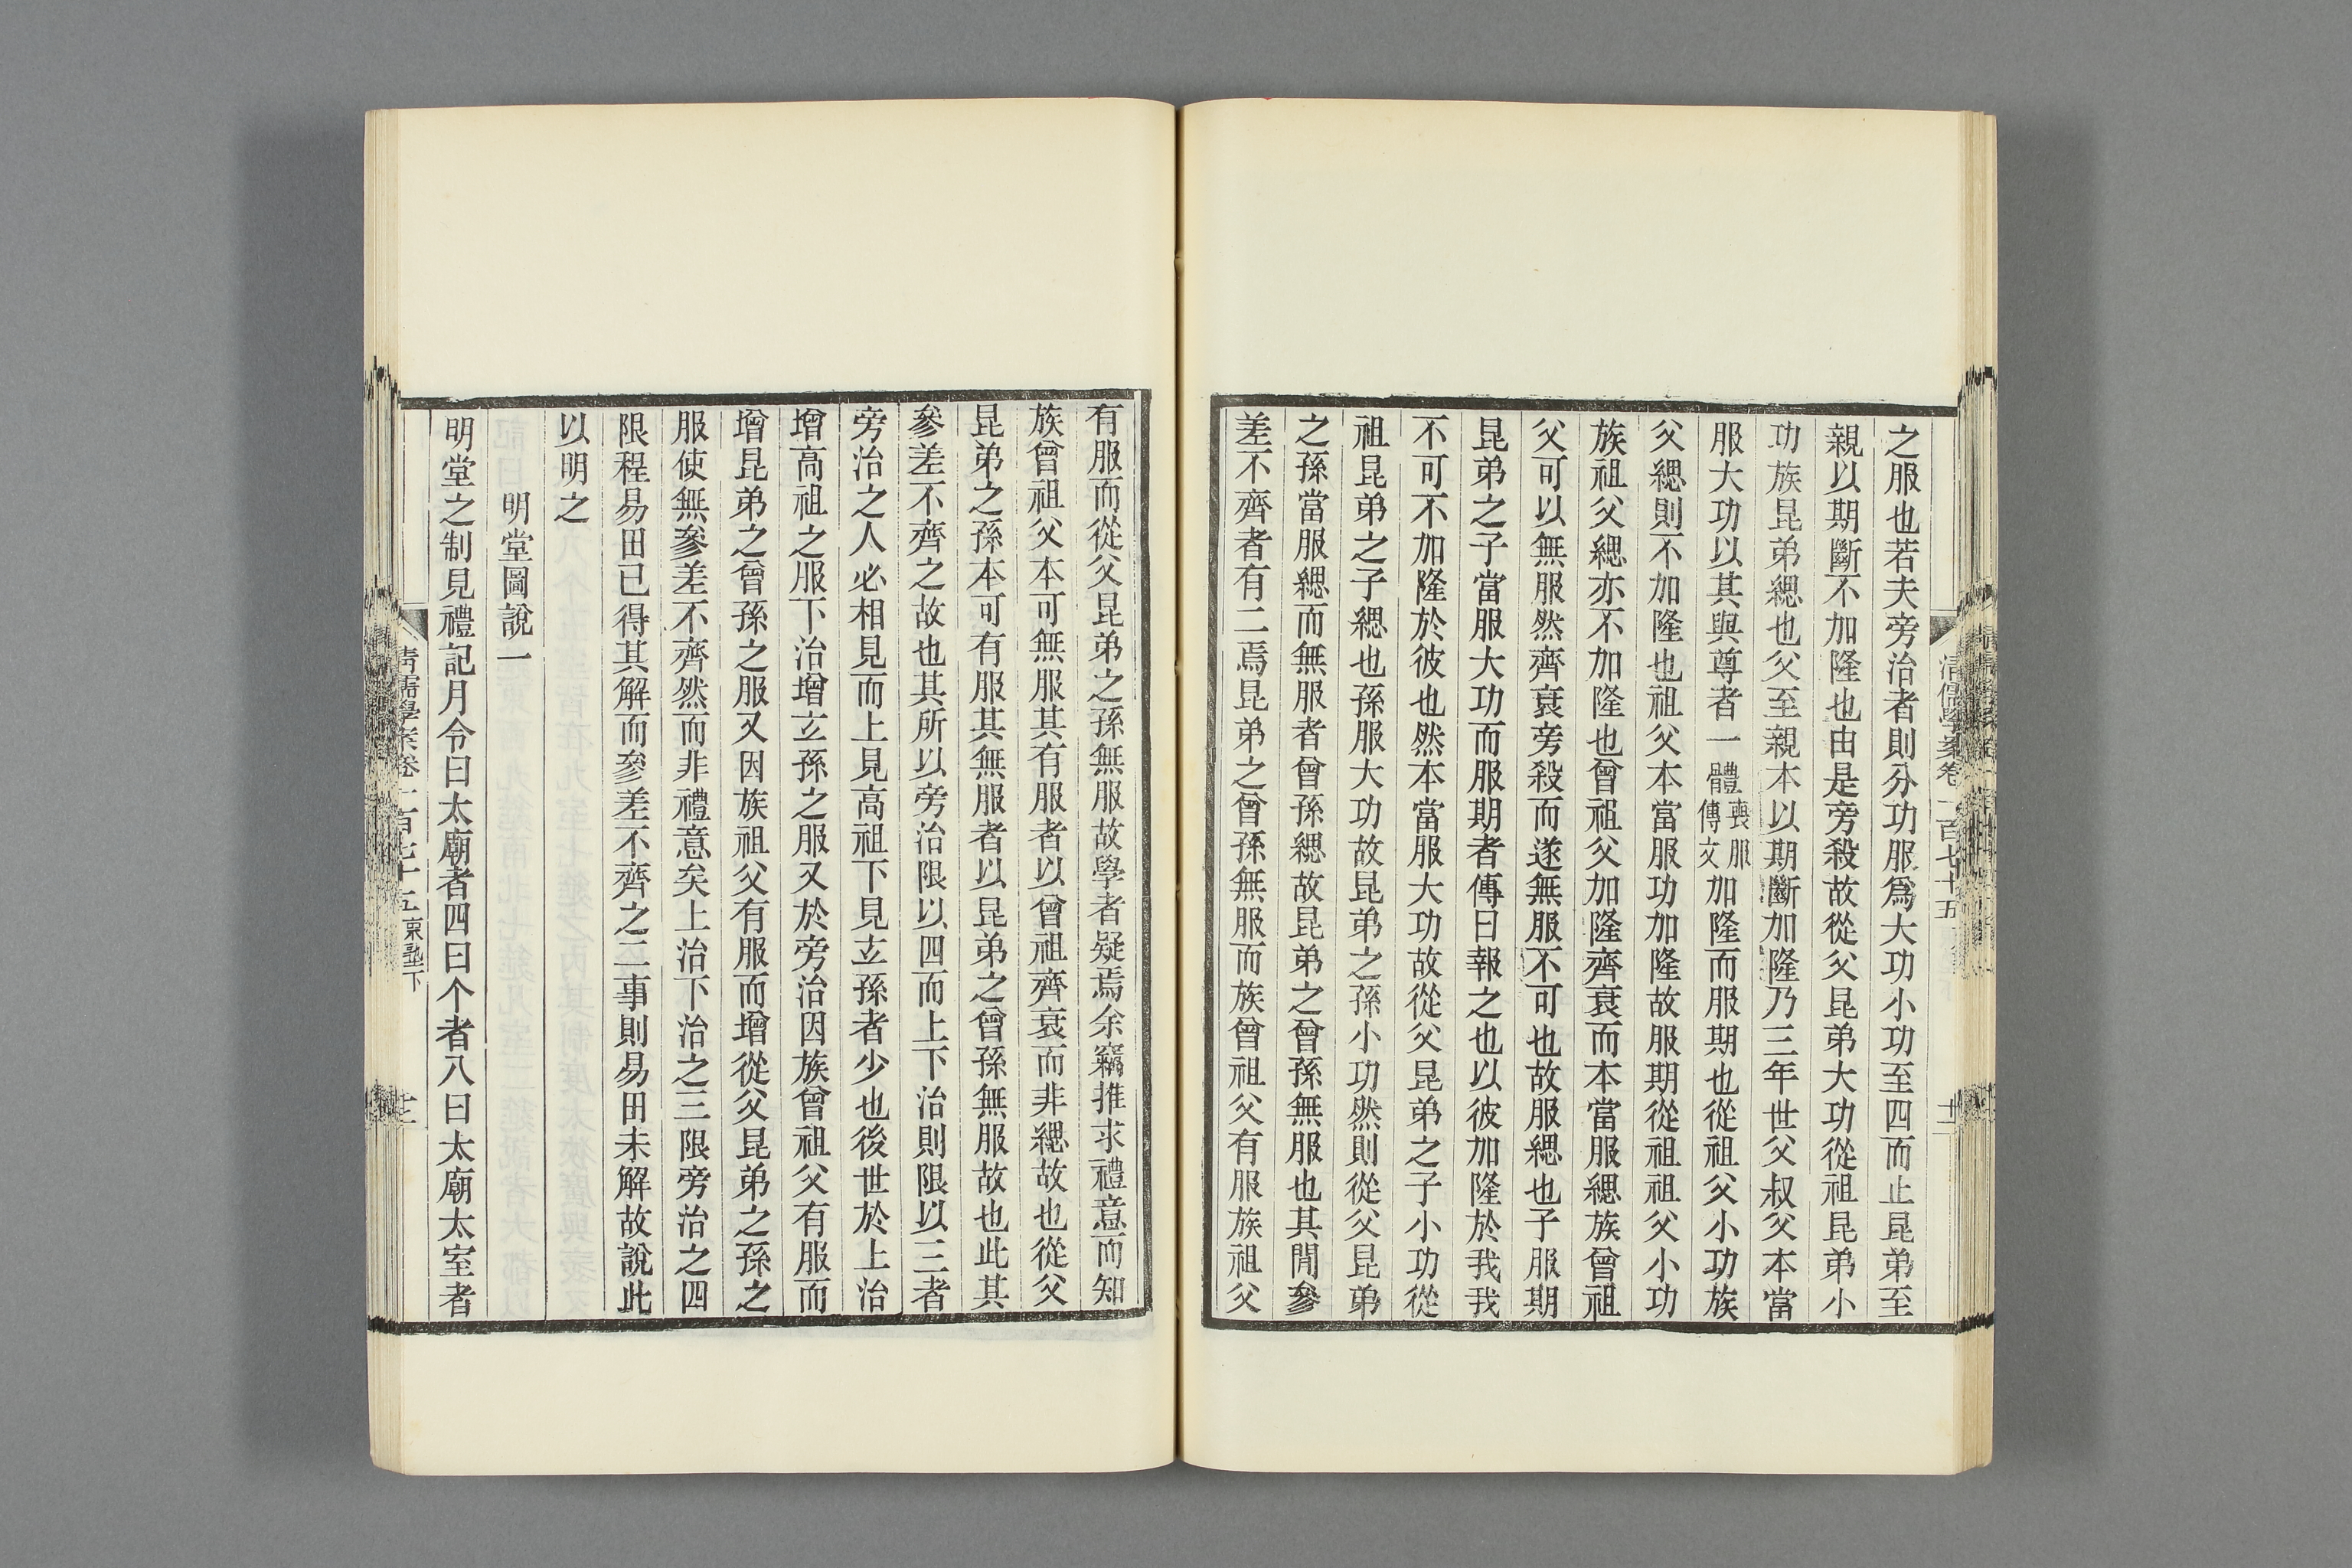 之服也若夫旁治者則分功服爲大功小功至四而止昆弟至
親以期斷不加隆也由是旁殺故從父昆弟大功從祖昆弟小
功族昆弟緦也父至親本以期斷加隆乃三年世父叔父本當
服大功以其與尊者一體喪服傳文加隆而服期也從祖父小功族
父緦則不加隆也祖父本當服功加隆故服期從祖祖父小功
族祖父緦亦不加隆也曾祖父加隆齊衰而本當服緦族曾祖
父可以無服然齊衰旁殺而遂無服不可也故服緦也子服期
昆弟之子當服大功而服期者傳曰報之也以彼加隆於我我
不可不加隆於彼也然本當服大功故從父昆弟之子小功從
祖昆弟之子緦也孫服大功故昆弟之孫小功然則從父昆弟
之孫當服緦而無服者曾孫緦故昆弟之曾孫無服也其閒參
差不齊者有二焉昆弟之曾孫無服而族曾祖父有服族祖父
清儒學案卷一百七十五
有服而從父昆弟之孫無服故學者疑焉余竊推求禮意而知
族曾祖父本可無服其有服者以曾祖齊衰而非緦故也從父
昆弟之孫本可有服其無服者以昆弟之曾孫無服故也此其
參差不齊之故也其所以旁治限以四而上下治則限以三者
旁治之人必相見而上見高祖下見玄孫者少也後世於上治
增高祖之服下治增玄孫之服又於旁治因族曾祖父有服而
增昆弟之曾孫之服又因族祖父有服而增從父昆弟之孫之
服使無參差不齊然而非禮意矣上治下治之三限旁治之四
限程易田已得其解而參差不齊之二事則易田未解故說此
以明之
明堂圖說一
明堂之制見禮記月令曰太廟者四曰个者八曰太廟太室者
清儒學案卷一百七十五 東塾下